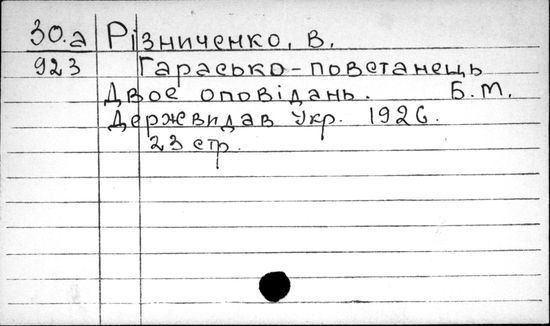 30.а Різниченко, В.
923 Гарасько-повстанець
Двоє оповідань. Б.М.
Держвидав Укр. 1926.
23 стр.